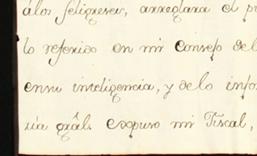 a los feligreses, arreglara el p
lo referido en mi Consejo de l
en su inteligencia, y de lo info
ria gräl. expuso mi Fiscal,